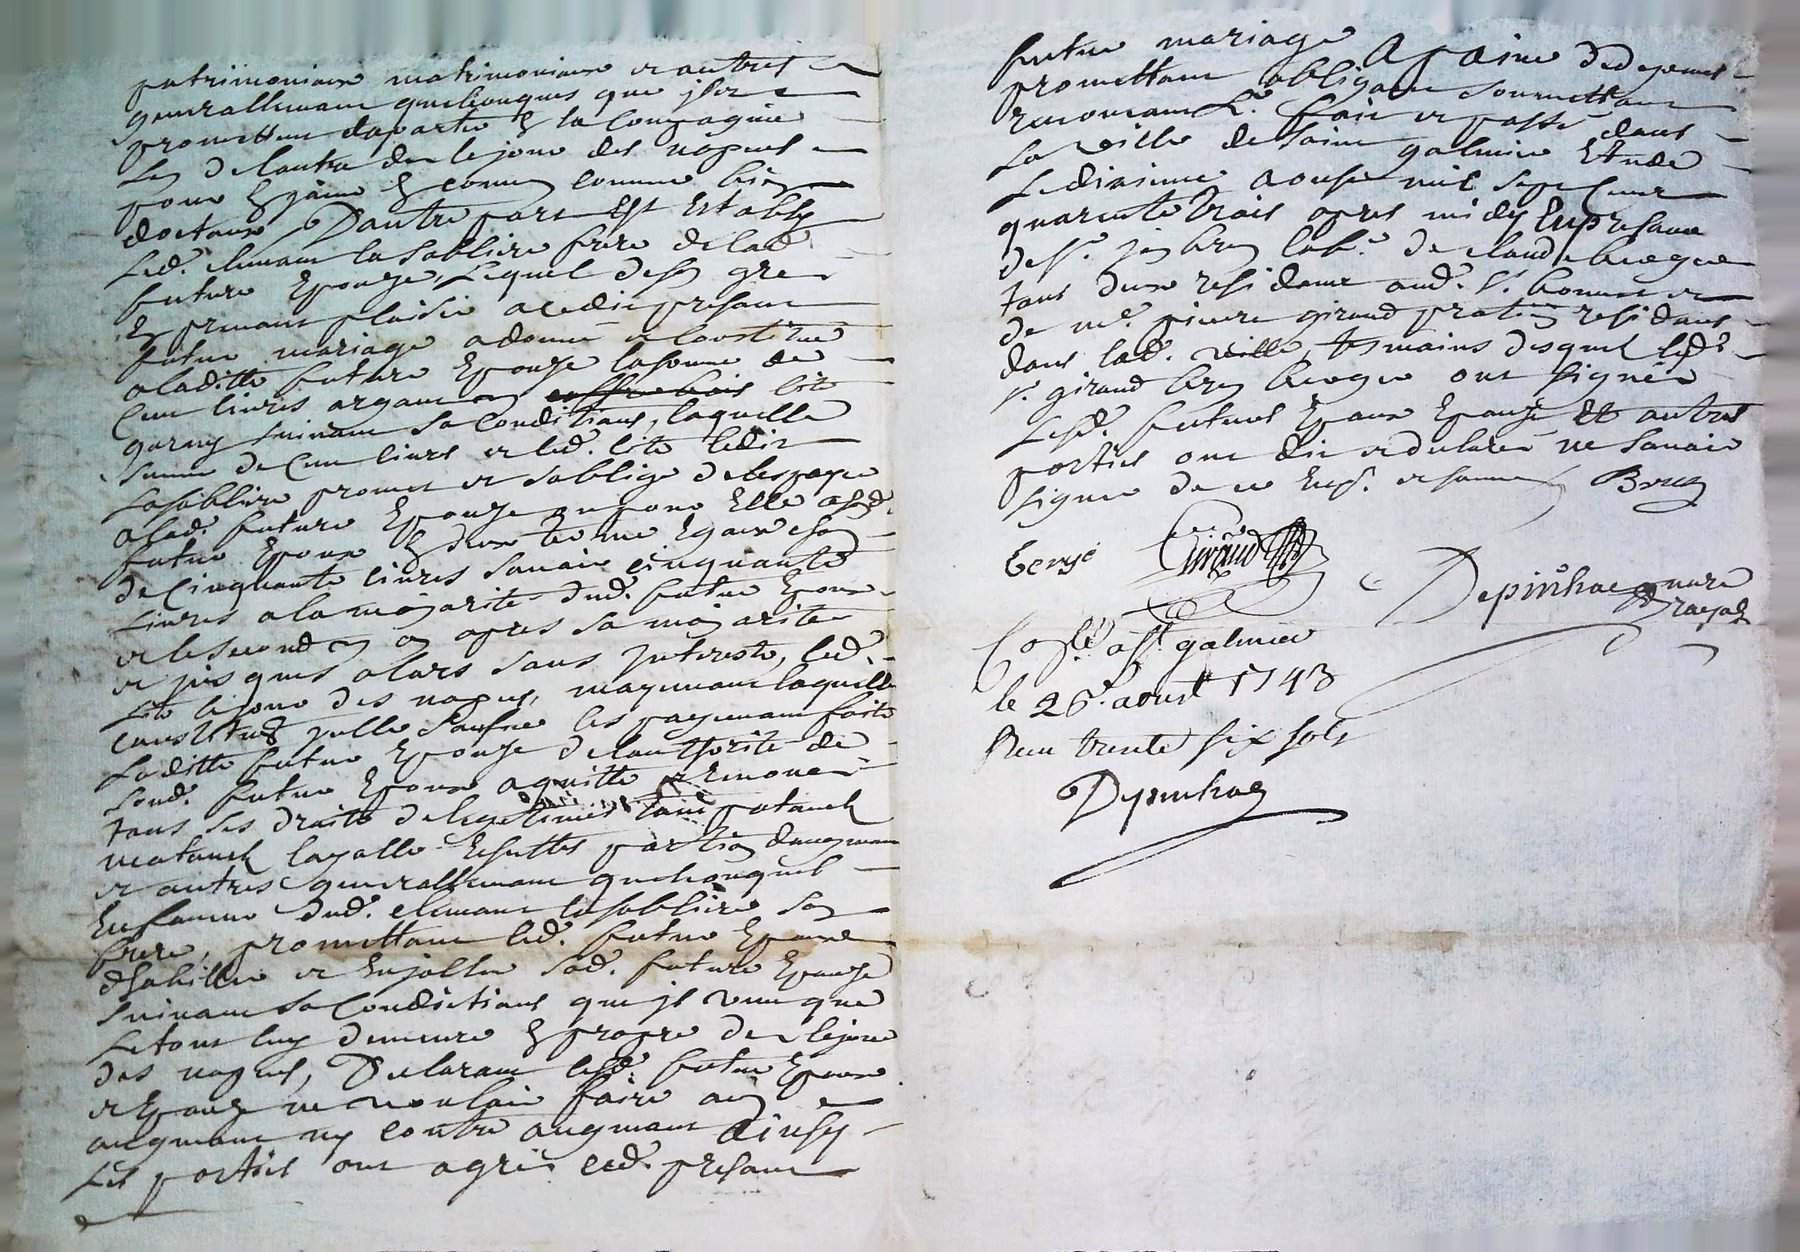 patrimoniaux matrimoniaux et autres
generallemant quelconques que jls
promettent daporter en la Compagnie
Lun delautre des lejour des nopces
pour en jouir en comun comme biens
doctaux, Dautre part Est Estably
Led. clemant la sabliere frere delad.
future Epouze, Lequel deson gre
En prenant plaisir acedit presant
futur mariage adonné et Constitué
aladitte future Epouze lasomme de
Cent livres argent un lit
garny suivant sa Conditions, laquelle
somme de Cent livres et led. lit ledit
Lasabliere promet et soblige delespayer
alad. future Epouze ou pour Elle asod.
futur Epoux En deux terme Egaux
de Cinquante livres scavoir cinquante
Livres alamajorité dud. futur Epoux
et le second un an apres sa majorité
et jusques alors sans jnterests, led.
Lit lejour des nopces, moyenant laquelle
Constitu[...] les payemant faits
Laditte future Epouze delauthorité de
Sond. futur Epoux a quitté et Renoncé
tous ses droits delegetimes patanels
matanels generallemant quelconques
En faveur dud. clemant lasabliere son
frere, promettant led. futur Epoux
dhabiller et Enjoller sad. future Epouze
suivant sa Condictions que jl veut que
Le tout luy demeure En propre des lejour
des nopces, Declarant lesd. futur Epoux
et Epouze ne vouloir faire aucun
augmant ny contre augmant Ainsy
Les parties ont agreé aud. presant
futur mariage A paine Dedepens
promettant obligant soumettant
Renonceant &c. fait et passé dans
La ville desaint galmier Etude
Ledixieme aoust mil sept Cent
quarente trois apres midy En presance
de sr. jean brun labr. de claude
tous deux residant aud. st. bonnet et
de me. pierre giraud praticien residant
dans lad. ville, tesmoins desquel lesd.
sr. giraud brun ont signés
Lesd. futurs Epoux Epouze Et autres
parties ont dit et declarer ne scavoir
signer de ce Enqs. et sommés Brun
Giraud
Depinhac notaire
Royal
Conlé a st galmier
le 26 aoust 1743
Receu trente six sols
Depinhac